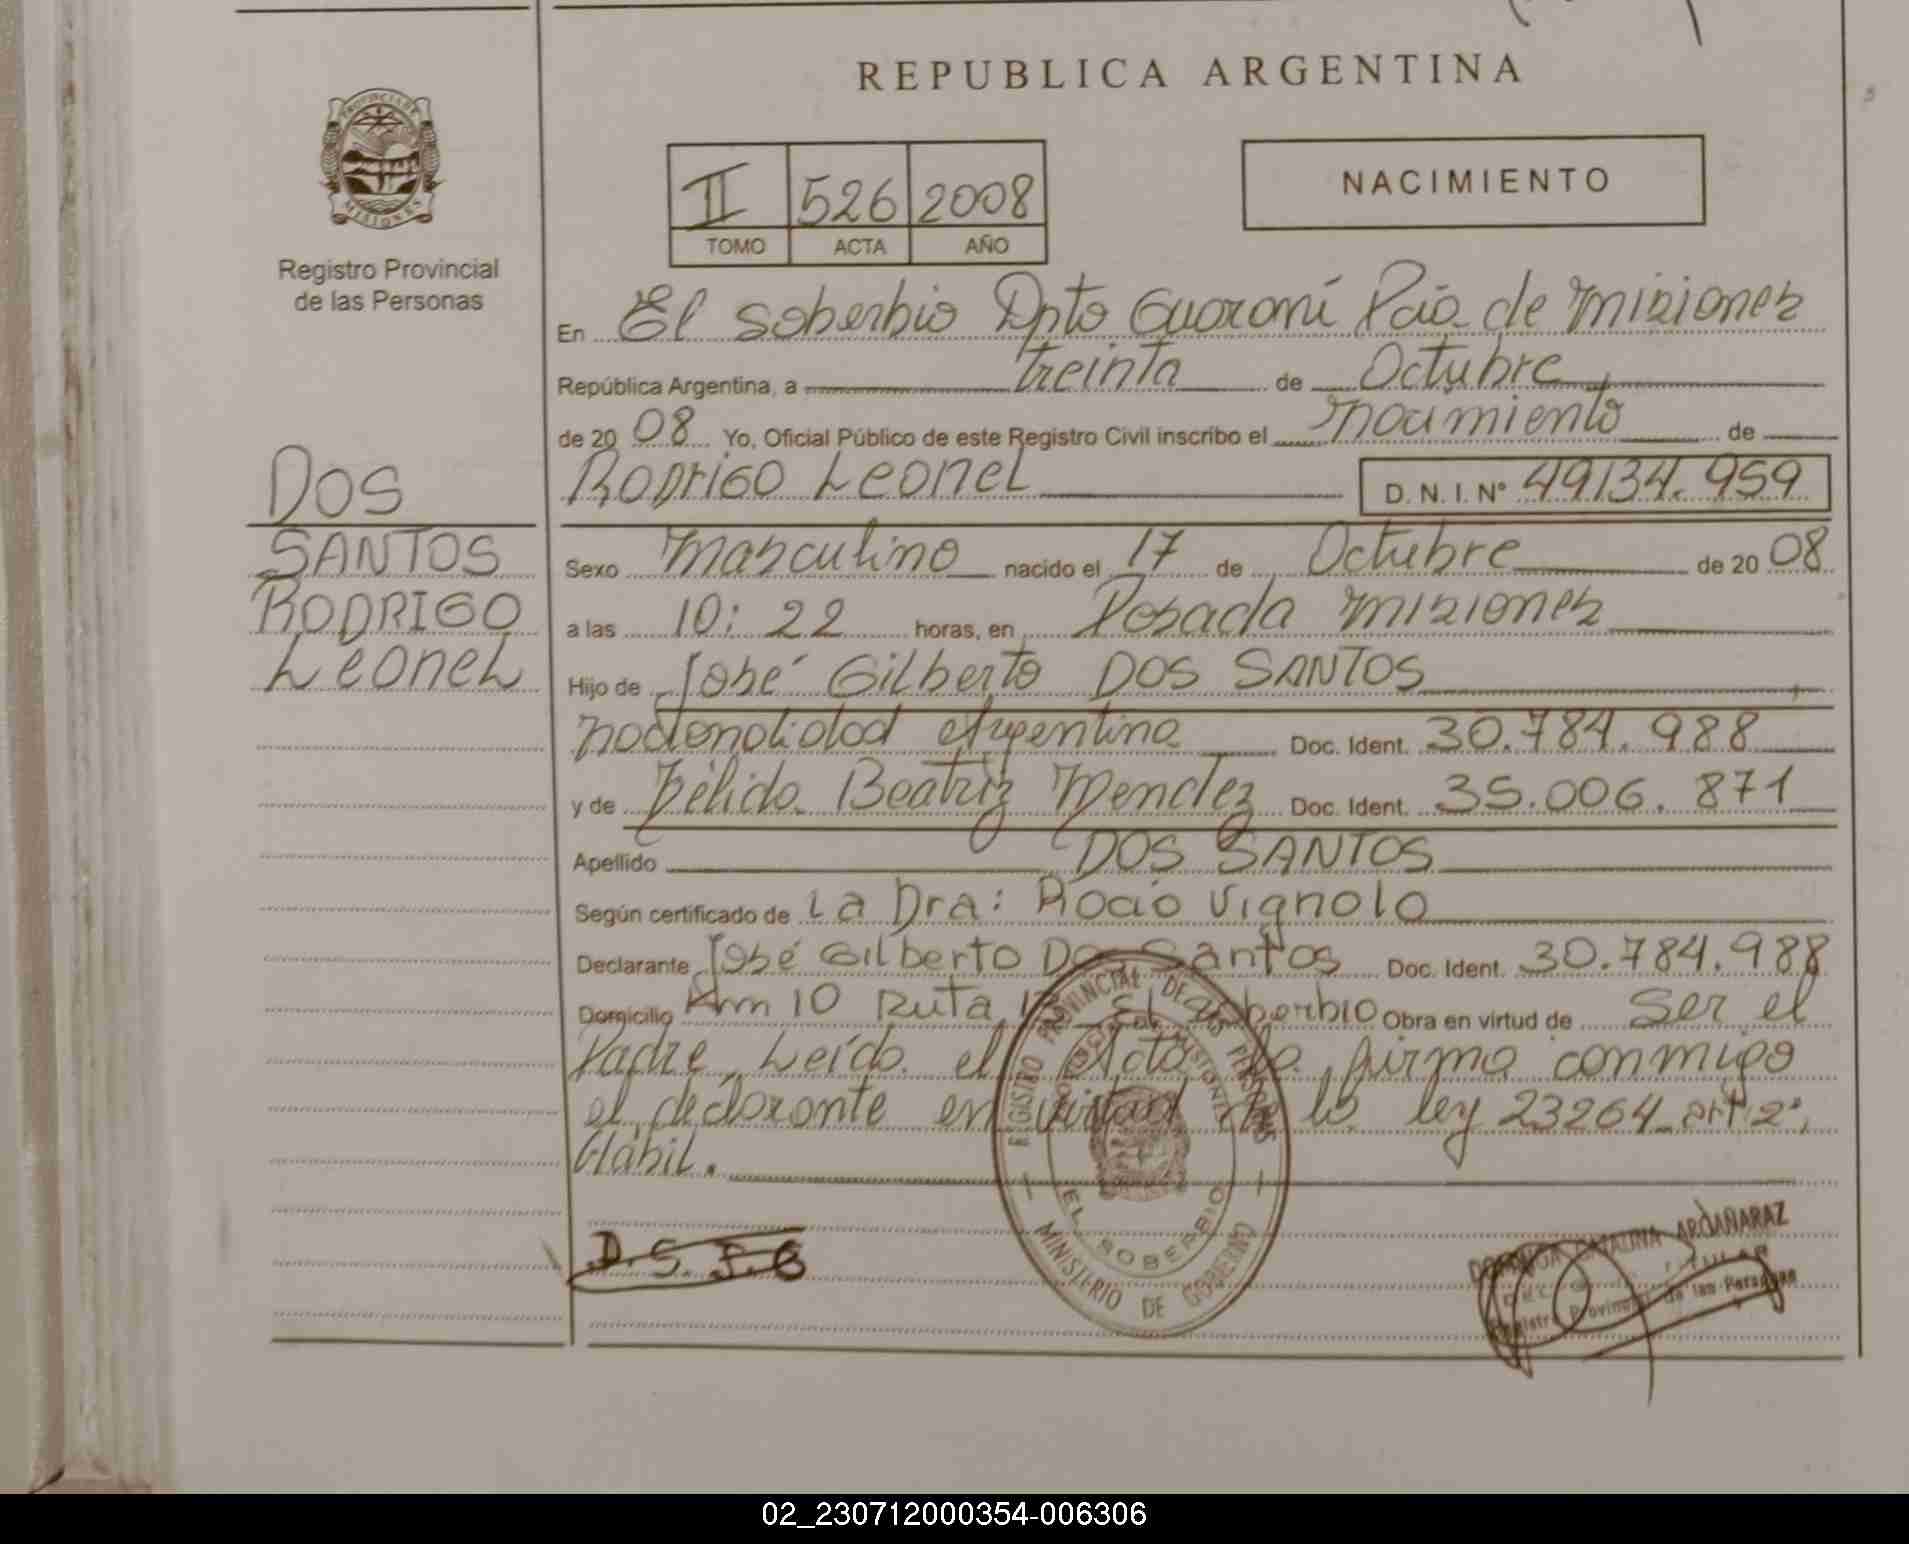 REPUBLICA ARGENTINA
PROVINCIA DE
MISIONES
Registro Provincial
de las Personas
II 526 2008
TOMO ACTA AÑO
NACIMIENTO
En El Soberbio Dpto Guaraní Pcia de Misiones
República Argentina, a treinta de Octubre
de 20 08 Yo, Oficial Público de este Registro Civil inscribo el nacimiento de
Rodrigo Leonel D. N. I. Nº 49134.959
DOS
SANTOS
RODRIGO
Leonel
Sexo Masculino nacido el 17 de Octubre de 20 08
a las 10:22 horas, en Posada Misiones
Hijo de José Gilberto DOS SANTOS
nacionalidad Argentina Doc. Ident. 30.784.988
y de Beatriz Mendez Doc. Ident. 35.006.871
Apellido DOS SANTOS
Según certificado de La Dra: Rocio Vignolo
Declarante José Gilberto Dos Santos Doc. Ident. 30.784.988
Domicilio Km 10 Ruta El Soberbio Obra en virtud de Ser el
Padre, Leída el Acta la firma conmigo
el declarante en virtud de la ley 23264 art 2º,
Hábil.
REGISTRO PROVINCIAL DE LAS PERSONAS
PROVINCIA MISIONES
EL SOBERBIO
MINISTERIO DE GOBIERNO
D.S.J.G
CATALINA ARDAÑARAZ
TITULAR
Registro Provincial de las Personas
02_230712000354-006306